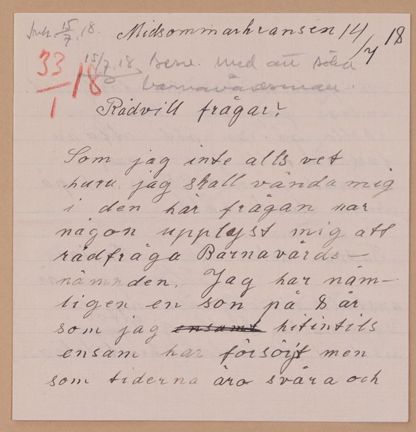 Ink. 15/7 18.
Midsommarkransen 14/7 18
33/1 18
15/7 18. Besv. med att söka
barnavårdsman.
Rådvill frågar!
Som jag inte alls vet
huru jag skall vända mig
i den här frågan har
någon upplyst mig att
rådfråga Barnavårds-
nämnden. Jag har näm-
ligen en son på 8 år
som jag ensamt hitintils
ensam har försörjt men
som tiderna äro svåra och